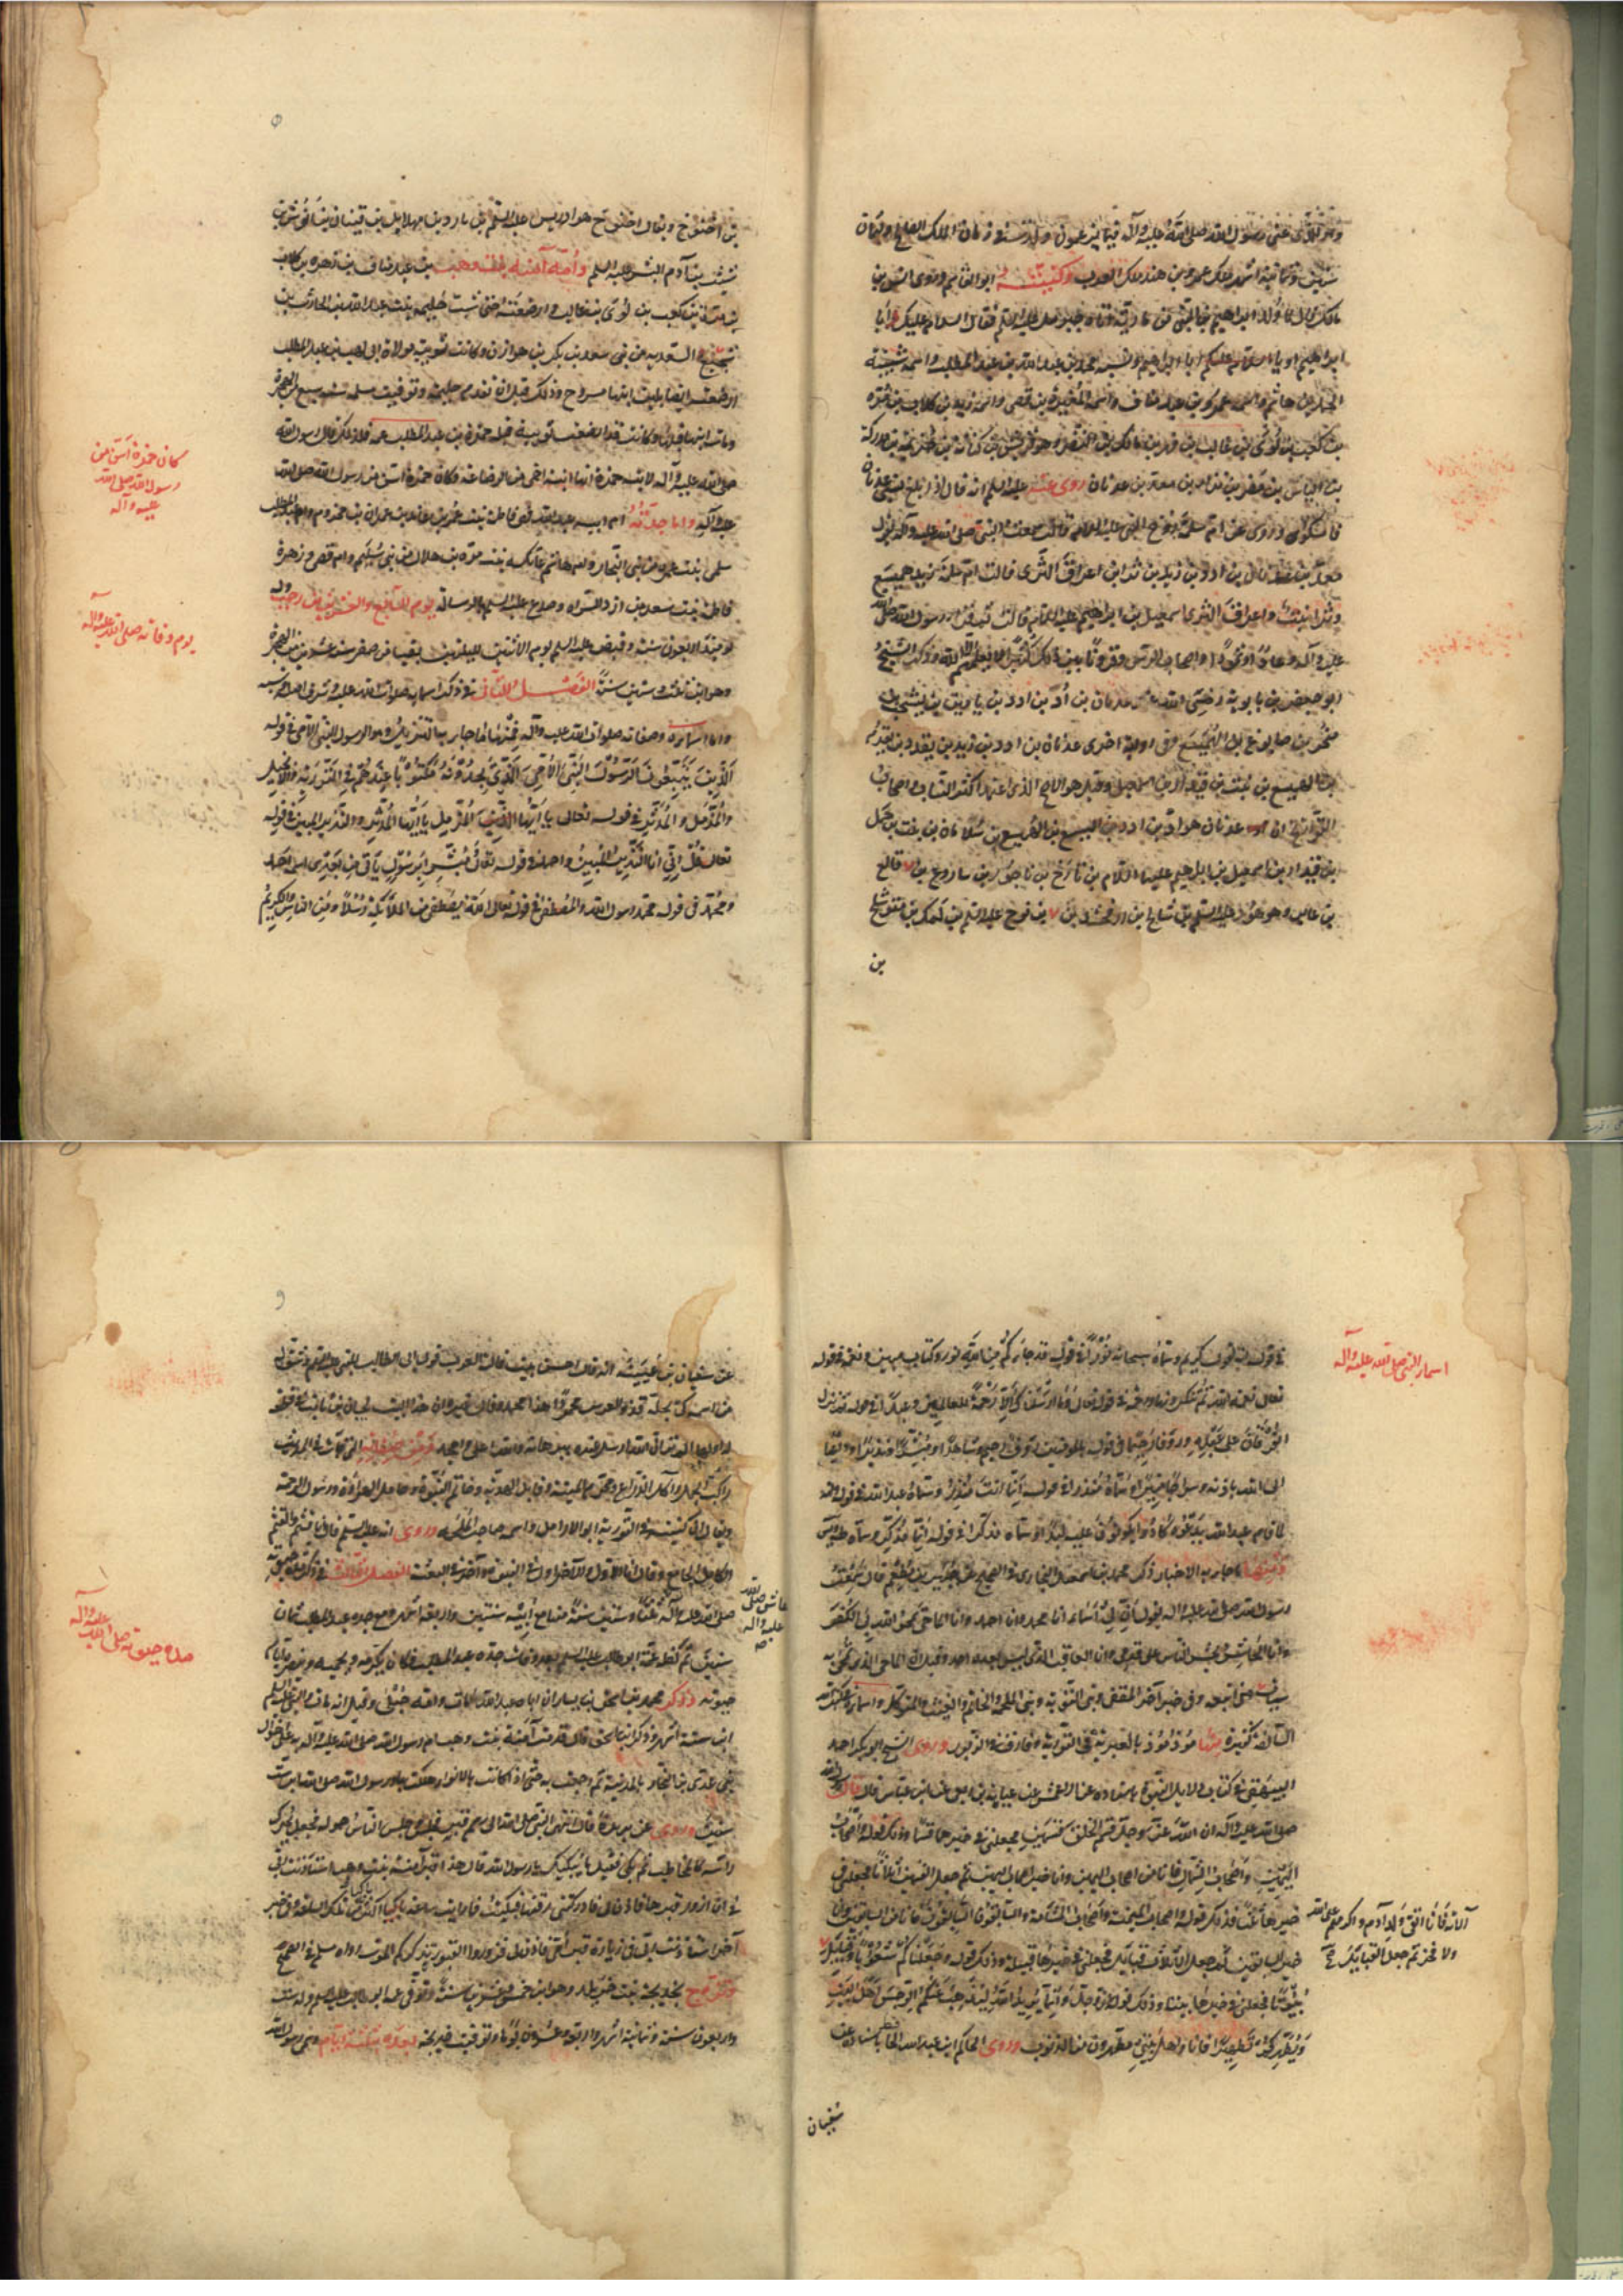 سنين وثمانية اشهر ملك عمرو بن هند ملك العرب وكنيته ابو القاسم وروى انس بن
مالك قال لما ولد ابراهيم ابن النبي من مارية اتاه جبرئيل عليه السلم فقال السلام عليك ابا
ابراهيم او يا ابا ابراهيم ونسبه محمد بن عبد الله بن عبد المطلب واسمه شيبة
الحمد بن هاشم واسمه عمرو بن عبد مناف واسمه المغيرة بن قصي واسمه زيد بن كلاب بن مرة
بن كعب بن لؤي بن غالب بن فهر بن مالك بن النضر وهو قريش بن كنانة بن خزيمة بن مدركة
بن الياس بن مضر بن نزار بن معد بن عدنان روى عنه عليه السلم انه قال اذا بلغ نسبي عدنان
فامسكوا وروى عن ام سلمة زوج النبي عليه السلام قالت سمعت النبي صلى الله عليه وآله يقول
معد بن عدنان بن ادد بن زيد بن ثرا بن اعراق الثرى قالت ام سلمة زيد هميسع
وثرا نبت واعراق الثرى اسمعيل بن ابراهيم عليه السلام قالت ثم قرا رسول الله صلى الله
عليه وآله وعادا وثمودا واصحاب الرس وقرونا بين ذلك كثيرا لا يعلمهم الا الله وذكر الشيخ
ابو جعفر بن بابويه رضي الله عنه عدنان بن أد بن ادد بن
وفى رواية اخرى عدنان بن ادد بن زيد بن يقدد بن يقدم
الهميسع بن نبت بن قيدار بن اسمعيل وقيل هو الاصح الذى اعتمد اكثر النساب واصحاب
التواريخ ان عدنان هو اد بن ادد بن اليسع بن الهميسع بن سلامان بن نبت بن حمل
بن قيدار بن اسمعيل بن ابراهيم عليهما السلام بن تارخ بن ناحور بن ساروغ بن فالغ
بن عابر وهو هود عليه السلم بن شالخ بن ارفخشد بن بن نوح عليه السلم بن لمك بن متوشلخ
بن
بن اخنوخ ويقال اخنوخ هو ادريس عليه السلم بن يارد بن مهلايل بن قينان بن انوش بن
شيث بن آدم ابو البشر عليه السلم وأمه آمنة بنت وهب بن عبد مناف بن زهرة بن كلاب
بن مرة بن كعب بن لؤي بن غالب وارضعته حتى شب حليمة بنت عبد الله بن الحارث بن
شجنة السعدية من بني سعد بن بكر بن هوازن وكانت ثويبة مولاة ابي لهب بن عبد المطلب
ارضعته ايضا بلبن ابنها مسروح وذلك قبل ان تقدم حليمة وتوفيت مسلمة سنة سبع من الهجرة
ومات ابنها قبلها وكانت قد ارضعت ثويبة قبله حمزة بن عبد المطلب عمه فلذلك قال رسول الله
صلى الله عليه وآله لابنة حمزة انها ابنة اخي من الرضاعة وكان حمزة اسن من رسول الله صلى الله
كان حمزة اسن من
رسول الله صلى الله
عليه وآله
عليه وآله واما جدته ام ابيه عبد الله فهي فاطمة بنت عمرو بن عائذ بن عمران بن مخزوم وام عبد المطلب
سلمى بنت عمرو من بني النجار وام هاشم عاتكة بنت مرة بن هلال من بني سليم وام قصي وزهرة
فاطمة بنت سعد من ازد السراة وصدع عليه السلم بالرسالة يوم السابع والعشرين من رجب وله
يوم وفاته صلى الله عليه وآله
يومئذ اربعون سنة وقبض عليه السلم يوم الاثنين لليلتين بقيتا من صفر سنة عشر من الهجرة
وهو ابن ثلث وستين سنة الفصل الثاني في ذكر اسمائه صلوات الله عليه وشرف اصله ونسبه
واما اسماؤه وصفاته صلوات الله عليه وآله فمنها ما جاء به التنزيل وهو الرسول النبي الامي في قوله
الذين يتبعون الرسول النبي الامي الذي يجدونه مكتوبا عندهم في التورية والانجيل
والمزمل والمدثر في قوله تعالى يا ايها المزمل يا ايها المدثر والنذير المبين في قوله
تعالى قل اني انا النذير المبين واحمد في قوله تعالى مبشرا برسول ياتي من بعدي اسمه احمد
ومحمد في قوله محمد رسول الله والمصطفى في قوله تعالى الله يصطفي من الملائكة رسلا ومن الناس والكريم
في قوله انه لقول رسول كريم وسماه سبحانه نورا في قوله قد جاءكم من الله نور وكتاب مبين ونعمة في قوله
اسماء النبي صلى الله عليه وآله
تعالى نعمة الله ثم ينكرونها ورحمة في قوله تعالى وما ارسلناك الا رحمة للعالمين وعبدا في قوله نزل
الفرقان على عبده ورؤفا رحيما في قوله بالمؤمنين رؤف رحيم وشاهدا ومبشرا ونذيرا وداعيا
الى الله باذنه وسراجا منيرا وسماه منذرا في قوله انما انت منذر وسماه عبد الله في قوله وانه
لما قام عبد الله يدعوه كادوا يكونون عليه لبدا وسماه مذكرا في قوله انما انت مذكر وسماه طه ويس
ومنها ما جاء به الاخبار ذكر محمد بن اسمعيل البخاري في الصحيح عن جبير بن مطعم قال سمعت
رسول الله صلى الله عليه وآله يقول ان لي اسماء انا محمد وانا احمد وانا الماحي يمحو الله بي الكفر
وانا الحاشر يحشر الناس على قدمي وانا العاقب الذي ليس بعده احد وقيل ان الماحي الذي يمحى به
سيئات من اتبعه وفي خبر آخر المقفى ونبي التوبة ونبي الملحمة والخاتم والغيث والمتوكل واسماؤه في كتب الله
السالفة كثيرة منها مؤذ مؤذ بالعبرية في التورية وفارق في الزبور وروى الشيخ ابو بكر احمد
البيهقي في كتاب دلايل النبوة باسناده عن الاعمش عن عباية بن ربعي عن ابن عباس قال قال رسول الله
صلى الله عليه وآله ان الله عز وجل قسم الخلق قسمين فجعلني في خيرهما قسما وذلك قوله واصحاب
اليمين واصحاب الشمال فانا من اصحاب اليمين وانا خير اصحاب اليمين ثم جعل القسمين اثلاثا فجعلني في
خيرها ثلثا فذلك قوله واصحاب الميمنة واصحاب المشئمة والسابقون السابقون فانا من السابقين وانا
الآية فانا اتقى ولد آدم واكرمهم على الله
ولا فخر ثم جعل القبايل
خير السابقين ثم جعل الاثلاث قبايل فجعلني في خيرها قبيلة وذلك قوله وجعلناكم شعوبا وقبايل
بيوتا فجعلني في خيرها بيتا وذلك قوله عز وجل انما يريد الله ليذهب عنكم الرجس اهل البيت
ويطهركم تطهيرا فانا واهل بيتي مطهرون من الذنوب وروى الحاكم ابو عبد الله الحافظ باسناده عن
سفيان
عن سفيان بن عيينة انه قال احسن بيت قالته العرب قول ابي طالب للنبي عليه السلم وشق له
من اسمه كي يجله فذو العرش محمود وهذا محمد وقال غيره ان هذا البيت لحسان بن ثابت في قطعة
له اولها الم تر ان الله ارسل عبده ببرهانه والله اعلى وامجد ومن صفاته التي جاءت في الحديث
راكب الجمل وآكل الذراع ومحرم الميتة وقابل الهدية وخاتم النبوة وحامل الهراوة ورسول الرحمة
ويقال ان كنيته في التورية ابو الارامل واسمه صاحب الملحمة وروى انه عليه السلم قال انا قثم والقثم
الكامل الجامع وقال انا الاول والآخر اول في النبوة وآخر في البعثة الفصل الثالث في ذكر مدة حيوته
صلى الله عليه وآله ثلثا وستين سنة منها مع ابيه سنتين واربعة اشهر ومع جده عبد المطلب ثمان
عاش صلى الله
عليه وآله
صح
مدة حيوته صلى الله عليه وآله
سنين ثم كفله عمه ابو طالب عليه السلم بعد وفاة جده عبد المطلب فكان يكرمه ويحميه وينصره ايام
حيوته وذكر محمد بن اسحق بن يسار ان اباه عبد الله مات وامه حبلى وقيل انه مات والنبي عليه السلم
ابن سبعة اشهر وذكر ابن اسحق قال قدمت آمنة بنت وهب ام رسول الله صلى الله عليه وآله به على اخواله
بني عدي بن النجار بالمدينة ثم رجعت به حتى اذا كانت بالابواء هلكت بها ورسول الله صلى الله ابن ست
سنين وروى عن بريدة قال انتهى النبي صلى الله الى رسم قبر فجلس وجلس الناس حوله فجعل يحرك
راسه كالمخاطب ثم بكى فقيل ما يبكيك يا رسول الله قال هذا قبر آمنة بنت وهب استاذنت ربي
في ان ازور قبرها فاذن لي فادركتني رقتها فبكيت فما رايته ساعة باكيا اكثر من تلك الساعة وفي خبر
آخر استاذنت ربي في زيارة قبر امي فاذن لي فزوروا القبور تذكركم الموت رواه مسلم في الصحيح
وتزوج بخديجة بنت خويلد وهو ابن خمس وعشرين سنة وتوفي عمه ابو طالب عليه السلم وله ست
واربعون سنة وثمانية اشهر واربعة وعشرون يوما وتوفيت خديجة بعده بثلثة ايام وسمى رسول الله